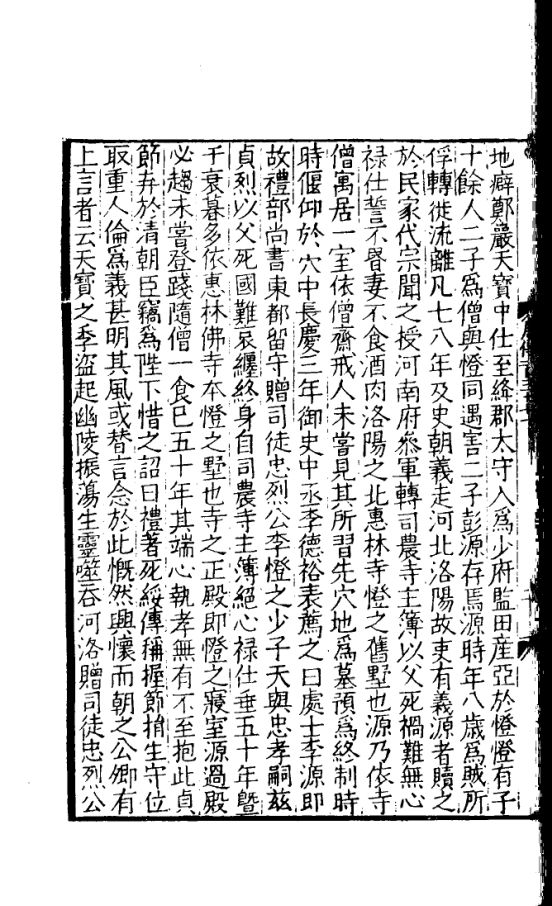 地癖鄭巖天寶中仕至絳郡太守入爲少府監田産亞於憕憕有子
十餘人二子爲僧與憕同遇害二子彭源存焉源時年八歳爲賊所
俘轉徙流離凡七八年及史朝義走河北洛陽故吏有義源者贖之
於民家代宗聞之授河南府參軍轉司農寺主簿以父死禍難無心
禄仕誓不㛰妻不食酒肉洛陽之北惠林寺憕之舊墅也源乃依寺
僧寓居一室依僧齋戒人未嘗見其所習先穴地爲墓預爲終制時
時偃仰於穴中長慶三年御史中丞李德裕表薦之曰處士李源即
故禮部尚書東都留守贈司徒忠烈公李憕之少子天與忠孝嗣茲
貞烈以父死國難哀纏終身自司農寺主簿絕心禄仕垂五十年暨
于衰暮多依惠林佛寺本憕之墅也寺之正殿即憕之寢室源過殿
必趨未嘗登踐隨僧一食已五十年其端心執孝無有不至抱此貞
節弃於清朝臣竊爲陛下惜之詔曰禮著死綏傳稱握節捐生守位
取重人倫爲義甚明其風或替言念於此慨然興懷而朝之公卿有
上言者云天寶之季盜起幽陵振蕩生靈噬吞河洛贈司徒忠烈公